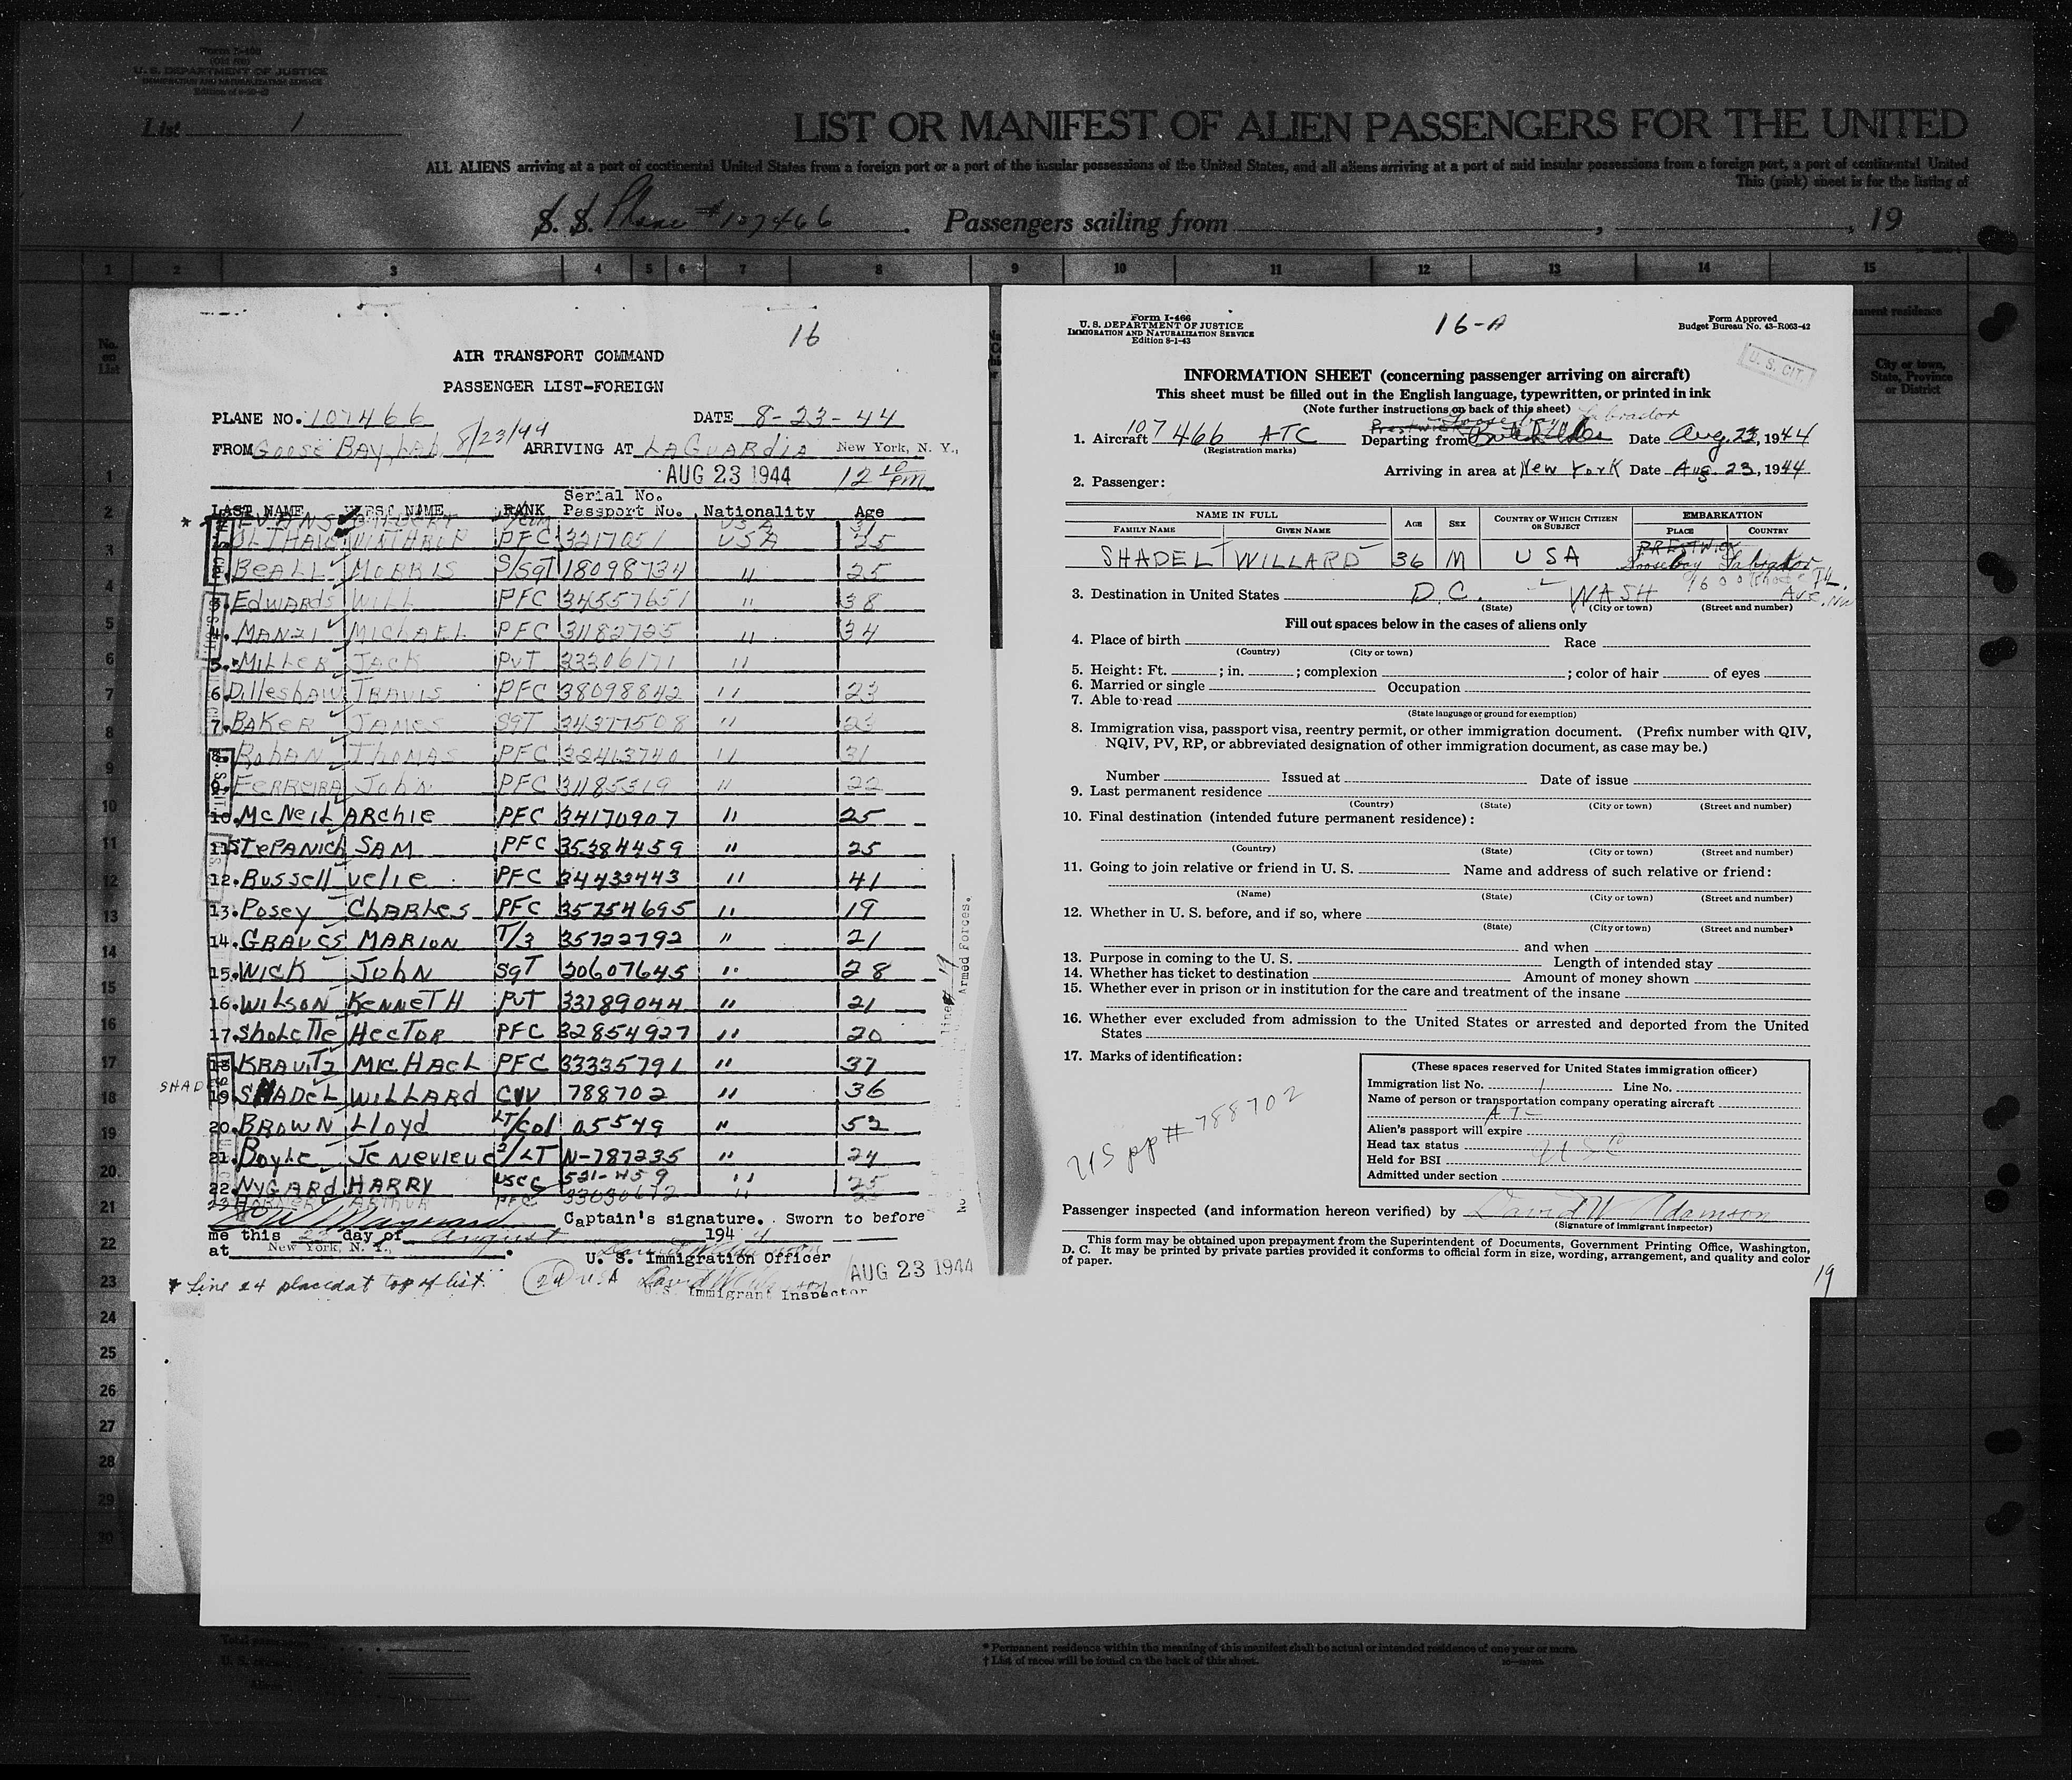 Form I-466
(Old 500)
U. S. DEPARTMENT OF JUSTICE
IMMIGRATION AND NATURALIZATION SERVICE
List 1
LIST OR MANIFEST OF ALIEN PASSENGERS FOR THE UNITED
ALL ALIENS arriving at a port of continental United States from a foreign port or a port of the insular possessions of the United States, and all aliens arriving at a port of said insular possessions from a foreign port, a port of continental United
This (pink) sheet is for the listing of
S. S. Plane #107466 . Passengers sailing from , , 19
1 2 3 4 5 6 7 8 9 10 11 12 13 14 15
No. on List
permanent residence
City or town, State, Province or District
16
AIR TRANSPORT COMMAND
PASSENGER LIST-FOREIGN
PLANE NO. 107466 DATE 8-23-44
FROM Goose Bay, Lab. 8/23/44 ARRIVING AT LaGuardia New York, N. Y.,
AUG 23 1944 12 10 pm
LAST NAME FIRST NAME RANK Serial No. Passport No. Nationality Age
* EVANS USA 31
WINTHROP PFC 3217051 USA 25
BEALL MORRIS S/SGT 18098734 " 25
3. EDWARDS WILL PFC 34557651 " 38
4. MANZI MICHAEL PFC 31182725 " 34
5. MILLER JACK PVT 33306171 "
6. Dilleshaw TRAVIS PFC 38098842 " 23
7. BAKER JAMES SGT 34377508 " 23
8. ROHAN THOMAS PFC 32413740 " 31
9. FERREIRA John PFC 31185319 " 22
10. McNeil ARchie PFC 34170907 " 25
11. StePANICh SAM PFC 35384459 " 25
12. Russell velie PFC 34433443 " 41
13. Posey ChARLes PFC 35754695 " 19
14. GRAVES MARION T/3 35722792 " 21
15. WICK JohN SGT 20607645 " 28
16. WILSON KENNETH PVT 33789044 " 21
17. Sholette HecToR PFC 32854927 " 20
18. KRAVITZ MICHAEL PFC 33335791 " 37
SHAD
19. SHADEL WILLARD CIV 788702 " 36
20. BROWN Lloyd LT/Col 05549 " 52
21. Boyle JeNevieve 2/LT N-787235 " 24
22. NYGARD HARRY USCG 521-459 " 25
23 ARTHUR PFC 33030672 "
Captain's signature. Sworn to before
me this day of August 194 4
at New York, N. Y., .
U. S. Immigration Officer
* Line 24 placed at top of list. 24 USA
AUG 23 1944
U.S. Immigrant Inspector
Armed Forces.
Form I-466
U. S. DEPARTMENT OF JUSTICE
IMMIGRATION AND NATURALIZATION SERVICE
Edition 8-1-43
16-A
Form Approved
Budget Bureau No. 43-R063-42
U. S. CIT.
INFORMATION SHEET (concerning passenger arriving on aircraft)
This sheet must be filled out in the English language, typewritten, or printed in ink
(Note further instructions on back of this sheet)
Prestwick Goose bay Labrador
1. Aircraft 107466 ATC Departing from Date Aug. 23, 1944
(Registration marks)
Arriving in area at New York Date Aug. 23, 1944
2. Passenger:
NAME IN FULL AGE SEX COUNTRY OF WHICH CITIZEN OR SUBJECT EMBARKATION
FAMILY NAME GIVEN NAME PLACE COUNTRY
SHADEL WILLARD 36 M USA PRESTWICK
Goosebay Labrador
3. Destination in United States D.C. WASH
(State) (City or town) (Street and number)
Fill out spaces below in the cases of aliens only
4. Place of birth Race
(Country) (City or town)
5. Height: Ft. ; in. ; complexion ; color of hair of eyes
6. Married or single Occupation
7. Able to read
(State language or ground for exemption)
8. Immigration visa, passport visa, reentry permit, or other immigration document. (Prefix number with QIV,
NQIV, PV, RP, or abbreviated designation of other immigration document, as case may be.)
Number Issued at Date of issue
9. Last permanent residence
(Country) (State) (City or town) (Street and number)
10. Final destination (intended future permanent residence):
(Country) (State) (City or town) (Street and number)
11. Going to join relative or friend in U. S. Name and address of such relative or friend:
(Name) (State) (City or town) (Street and number)
12. Whether in U. S. before, and if so, where
(State) (City or town) (Street and number)
and when
13. Purpose in coming to the U. S. Length of intended stay
14. Whether has ticket to destination Amount of money shown
15. Whether ever in prison or in institution for the care and treatment of the insane
16. Whether ever excluded from admission to the United States or arrested and deported from the United
States
17. Marks of identification:
US pp# 788702
(These spaces reserved for United States immigration officer)
Immigration list No. 1 Line No.
Name of person or transportation company operating aircraft
Alien's passport will expire
Head tax status
Held for BSI USC
Admitted under section
Passenger inspected (and information hereon verified) by David W Adamson
(Signature of immigrant inspector)
This form may be obtained upon prepayment from the Superintendent of Documents, Government Printing Office, Washington,
D. C. It may be printed by private parties provided it conforms to official form in size, wording, arrangement, and quality and color
of paper.
19
1
2
3
4
5
6
7
8
9
10
11
12
13
14
15
16
17
18
19
20
21
22
23
24
25
26
27
28
29
30
* Permanent residence within the meaning of this manifest shall be actual or intended residence of one year or more.
† List of races will be found on the back of this sheet.